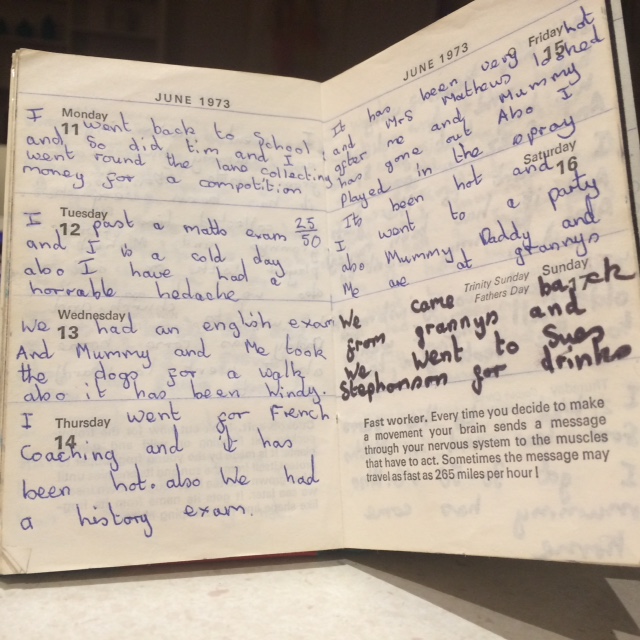 JUNE 1973
Monday
11
I went back to School
and So did tim and I
went round the lane collecting
money for a compotition
Tuesday
12
I past a maths exam 25/50
and I is a cold day
also I have had a
horrable hedache
Wednesday
13
We had an english exam
And Mummy and Me took
the dogs for a walk
also it has been windy.
Thursday
14
I went for French
Coaching and it has
been hot. also We had
a history exam.
JUNE 1973
Friday
15
It has been very hot
and Mrs Mathews
after me and Mummy
has gone out Also I
Played in the spray
Saturday
16
Its been hot and
I went to a party
also Mummy, Daddy and
Me are at grannys
Trinity Sunday
Fathers Day
Sunday
We came back
from grannys and
We went to Sues
Stephenson for drinks
Fast worker. Every time you decide to make
a movement your brain sends a message
through your nervous system to the muscles
that have to act. Sometimes the message may
travel as fast as 265 miles per hour!